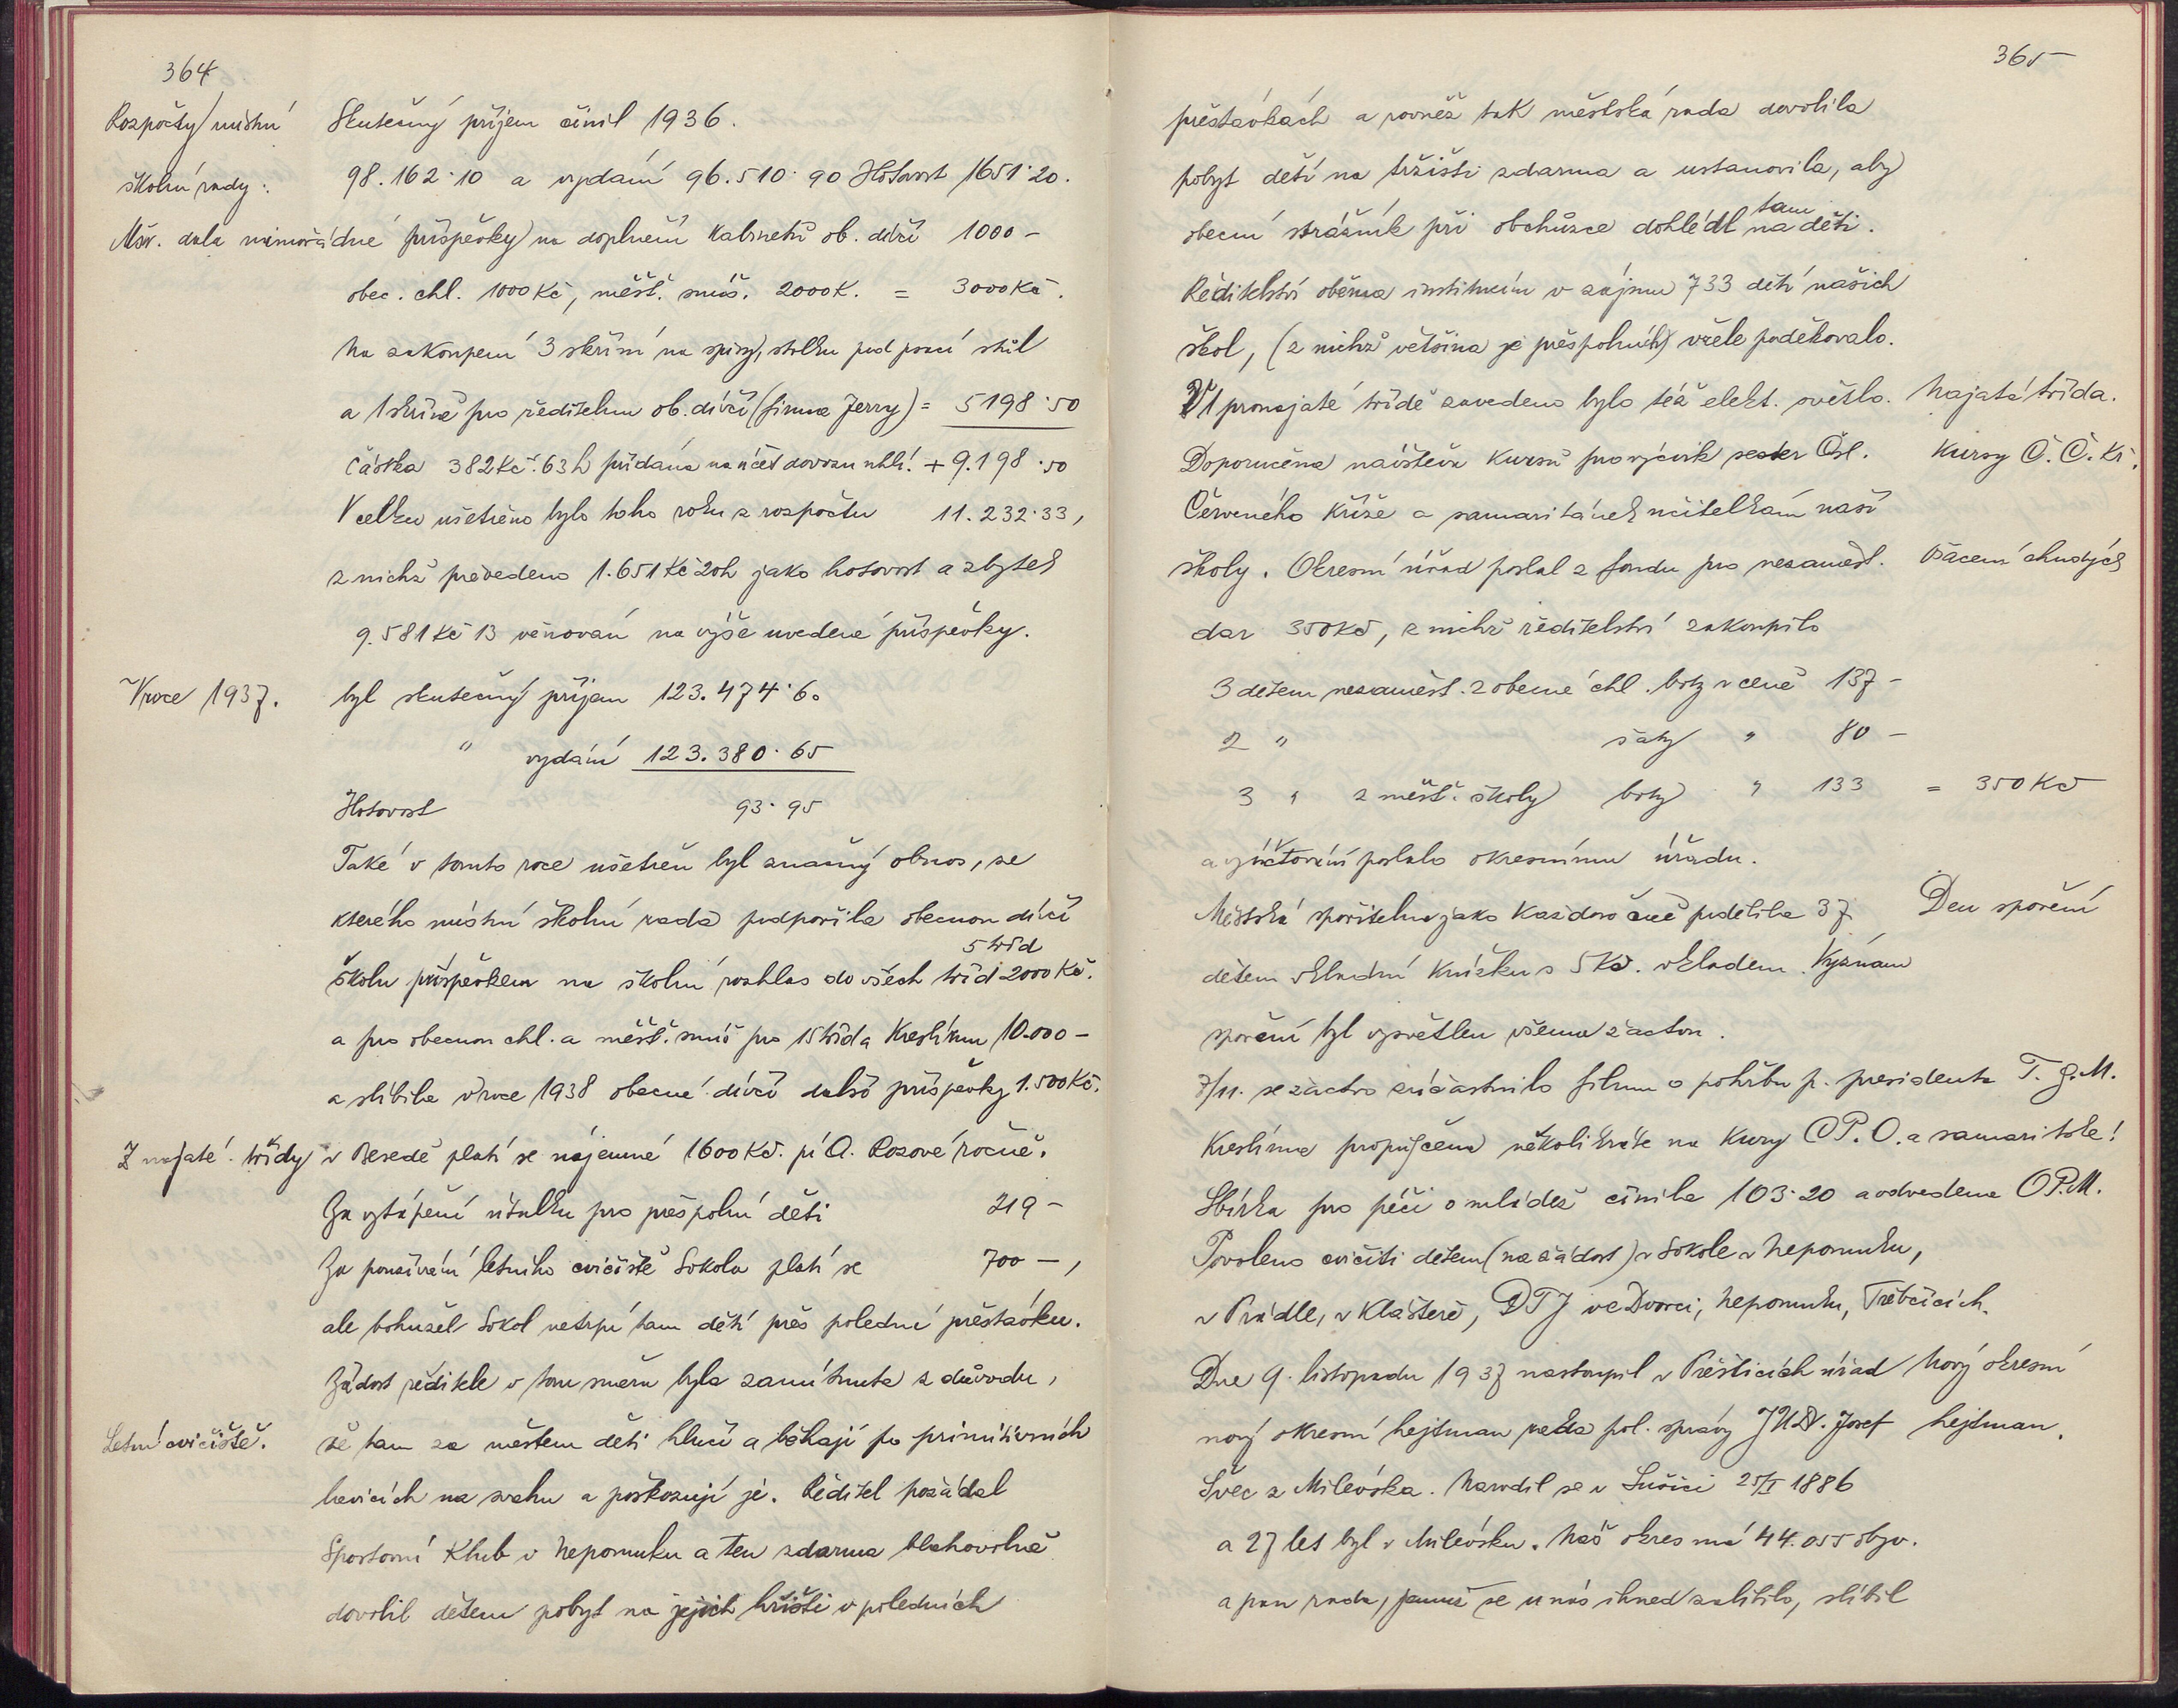 364
Rozpočty místní Skutečný příjem činil 1936.
školní rady: 98.162·10 a vydání 96.510·90 Hotovost 1651·20.
Mšr. dala mimořádné příspěvky na doplnění kabinetů ob. dívčí 1000 –
obec. chl. 1000 Kč, měšť. smíš. 2000 K. = 3000 Kč.
Na zakoupení 3 skříní na spisy, stolku pod psací stůl
a 1 skříně pro ředitelnu ob. dívčí (firma Jerry) = 5198·50
částka 382 Kč. 63 h přidána na účet dovozu uhlí! + 9.198·50
V celku ušetřeno bylo toho roku z rozpočtu 11.232·33,
z nichž převedeno 1.651 Kč 20h jako hotovost a zbytek
9.581 Kč 13 věnován na výše uvedené příspěvky.
V roce 1937. byl skutečný příjem 123.474·60
" vydání 123.380·65
Hotovost 93·95
Také v tomto roce ušetřen byl značný obnos, ze
kterého místní školní rada podpořila obecnou dívčí
5 tříd
školu příspěvkem na školní rozhlas do všech tříd 2000 Kč.
a pro obecnou chl. a měšť. smíš pro 15 tříd a kreslírnu 10.000 –
a slíbila v roce 1938 obecné dívčí další příspěvky 1.500 Kč.
Z najaté třídy v Besedě platí se nájemné 1600 Kč. pí A. Rozové ročně.
Za vytápění útulku pro přespolní děti 219 –
Za používání letního cvičiště Sokola platí se 700 –,
ale bohužel Sokol netrpí tam dětí přes polední přestávku.
Žádost ředitele v tom směru byla zamítnuta z důvodu,
Letní cvičiště. že tam za městem děti hlučí a běhají po primitivních
lavicích na svahu a poškozují je. Ředitel požádal
Sportovní Klub v Nepomuku a ten zdarma blahovolně
dovolil dětem pobyt na jejich hřišti v poledních
365
přestávkách a rovněž tak městská rada dovolila
pobyt dětí na tržišti zdarma a ustanovila, aby
tam
obecní strážník při obchůzce dohlédl na děti.
Ředitelství oběma institucím v zájmu 733 dětí našich
škol, (z nichž většina je přespolních) vřele poděkovalo.
V 1 pronajaté třídě zavedeno bylo též elekt. světlo. Najatá třída.
Doporučena návštěva kursů pro výcvik sester Čsl. Kursy Č. Č. Kř.
Červeného Kříže a samaritánek učitelkám naší
školy. Okresní úřad poslal z fondu pro nezaměst. Ošacení chudých
dar 350 Kč, z nichž ředitelství zakoupilo
3 dětem nezaměst. z obecné chl. boty v ceně 137 –
2 " šaty " 80 –
3 " z měšť. školy boty " 133 = 350 Kč
a vyúčtování poslalo okresnímu úřadu.
Městská spořitelna jako každoročně podělila 37 Den spoření
dětem vkladní knížku s 5 Kč. vkladem. Význam
spoření byl vysvětlen všemu žactvu.
7/11. se žactvo zúčastnilo filmu o pohřbu p. presidenta T. G. M.
Kreslírna propůjčena několikráte na kursy CPO. a samaritské!
Sbírka pro péči o mládež činila 103·20 a odvedena OPM.
Povoleno cvičiti dětem (na žádost) v Sokole v Nepomuku,
v Prádle, v Klášteře, DTJ ve Dvorci, Nepomuku, Třebčicích.
Dne 9. listopadu 1937 nastoupil v Přešticích úřad Nový okresní
nový okresní hejtman rada pol. správy JUDr. Josef hejtman.
Švec z Milevska. Narodil se v Sušici 25/I 1886
a 27 let byl v Milevsku. Náš okres má 44.055 obyv.
a pan rada, jemuž se u nás ihned zalíbilo, slíbil